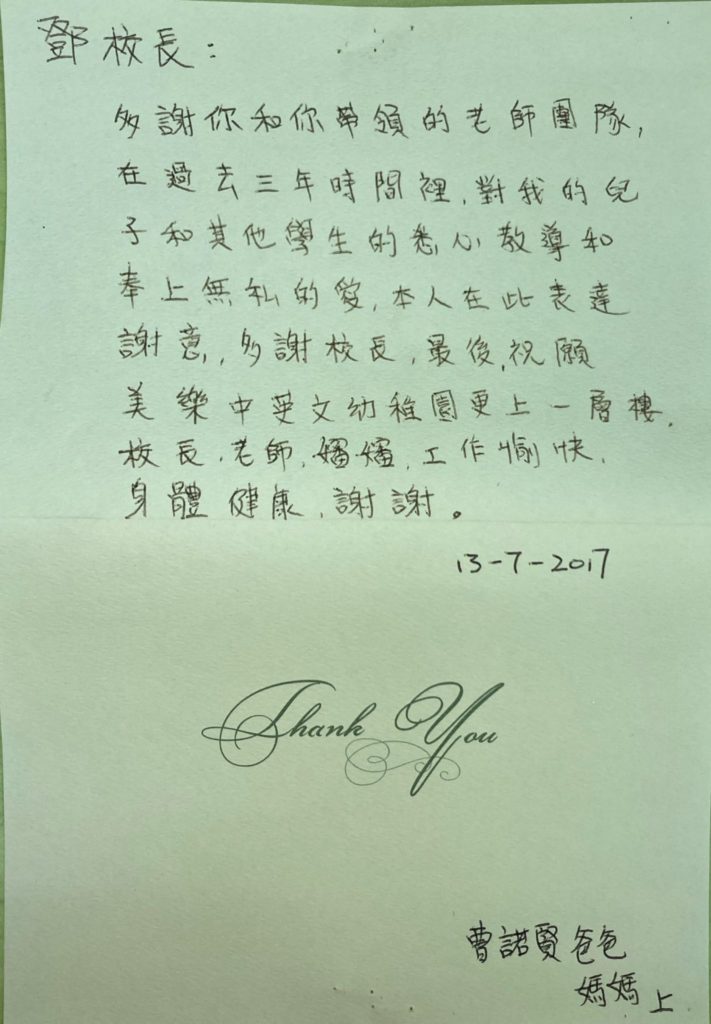 鄧校長:
多謝你和你帶領的老師團隊,
在過去三年時間裡,對我的兒
子和其他學生的悉心教導和
奉上無私的愛,本人在此表達
謝意,多謝校長,最後,祝願
美樂中英文幼稚園更上一層樓,
校長,老師,嬸嬸,工作愉快,
身體健康,謝謝。
13-7-2017
Thank You
曹諾賢爸爸
媽媽上